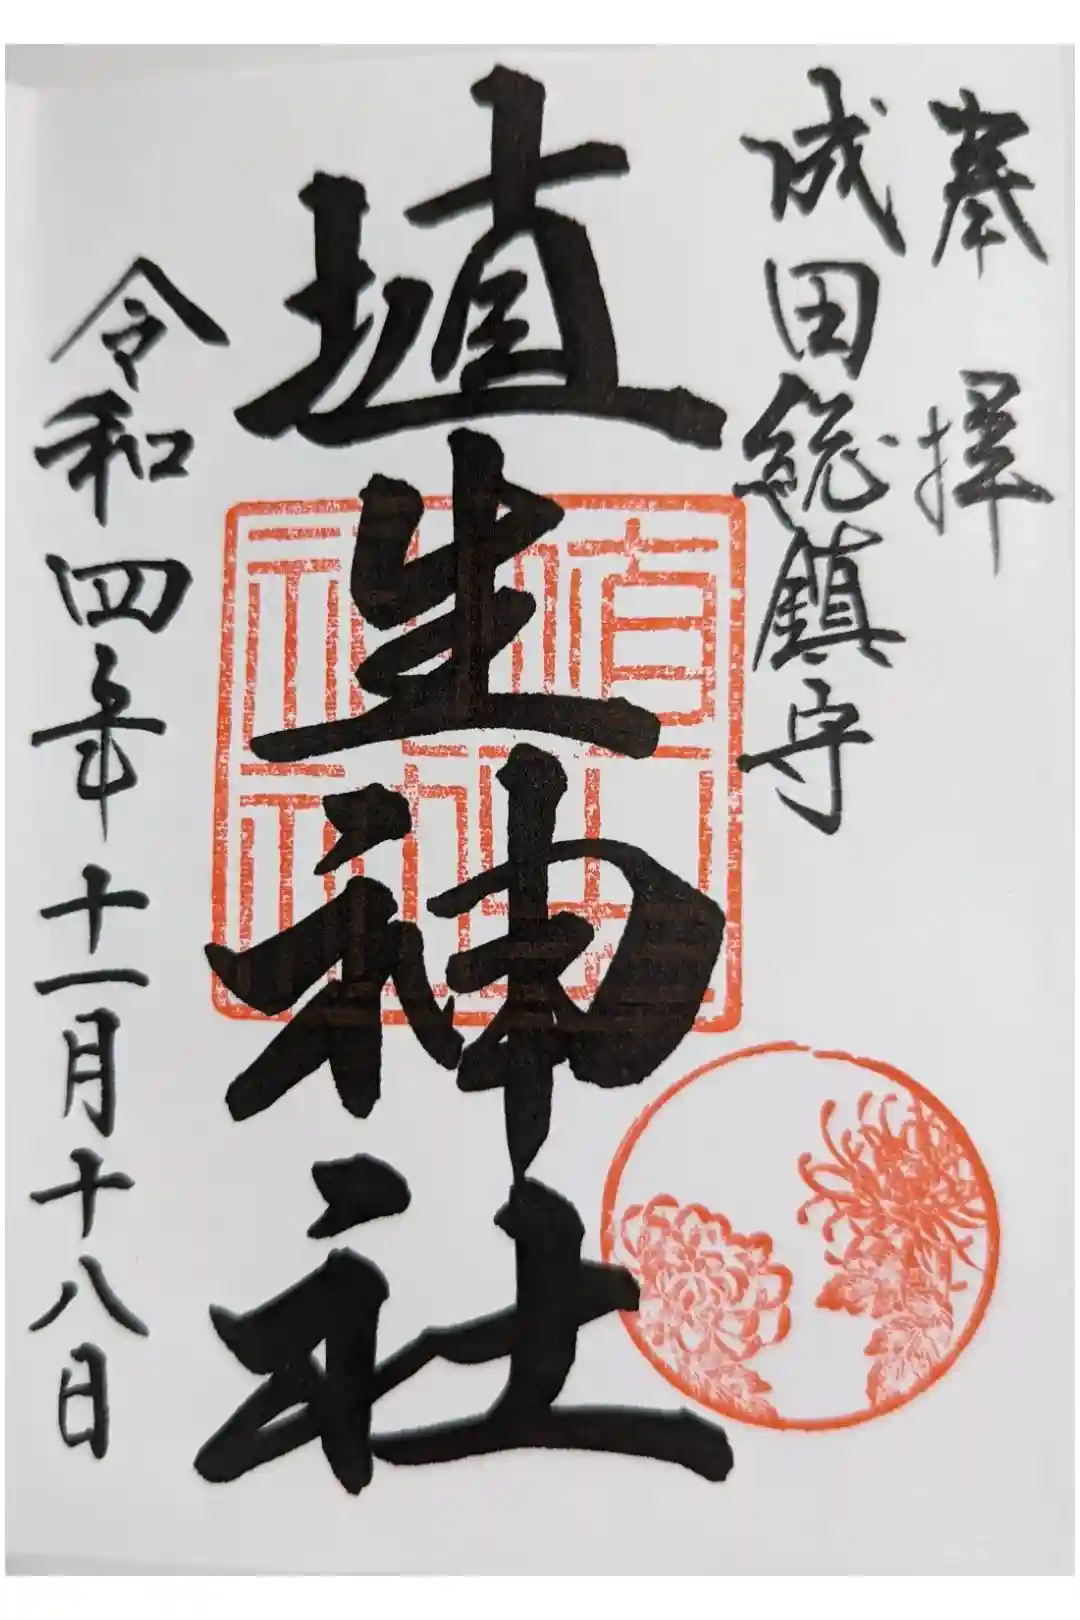 奉拝
成田総鎮守
埴生神社
埴生神社
令和四年十一月十八日